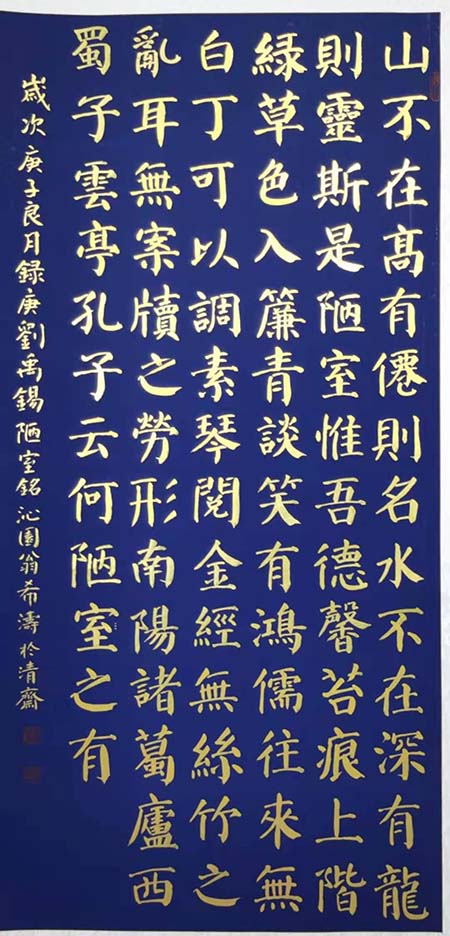 山不在髙有僊則名水不在深有龍
則靈斯是陋室惟吾德馨苔痕上階
緑草色入簾青談笑有鴻儒往來無
白丁可以調素琴閱金經無絲竹之
亂耳無案牘之勞形南陽諸葛廬西
蜀子雲亭孔子云何陋室之有
歲次庚子良月録唐劉禹錫陋室銘沁園翁希濤於清齋